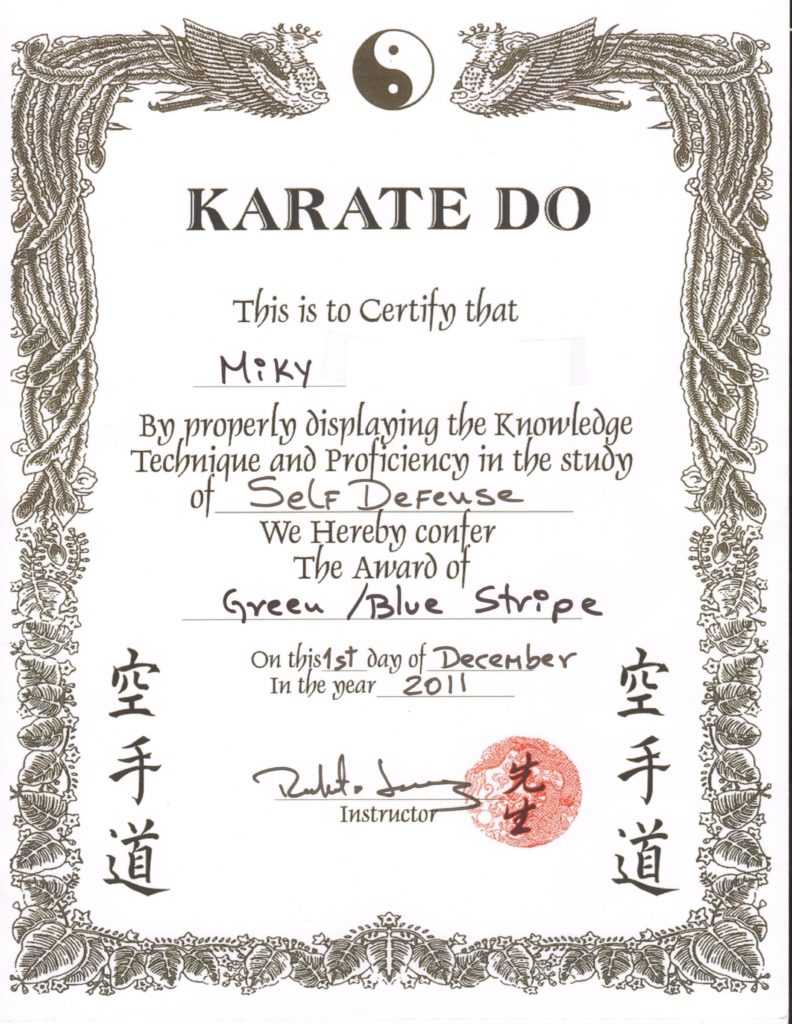 KARATE DO
This is to Certify that
Miky
By properly displaying the Knowledge
Technique and Proficiency in the study
of Self Defense
We Hereby confer
The Award of
Green /Blue Stripe
On this 1st day of December
In the year 2011
Instructor
空手道
空手道
先生